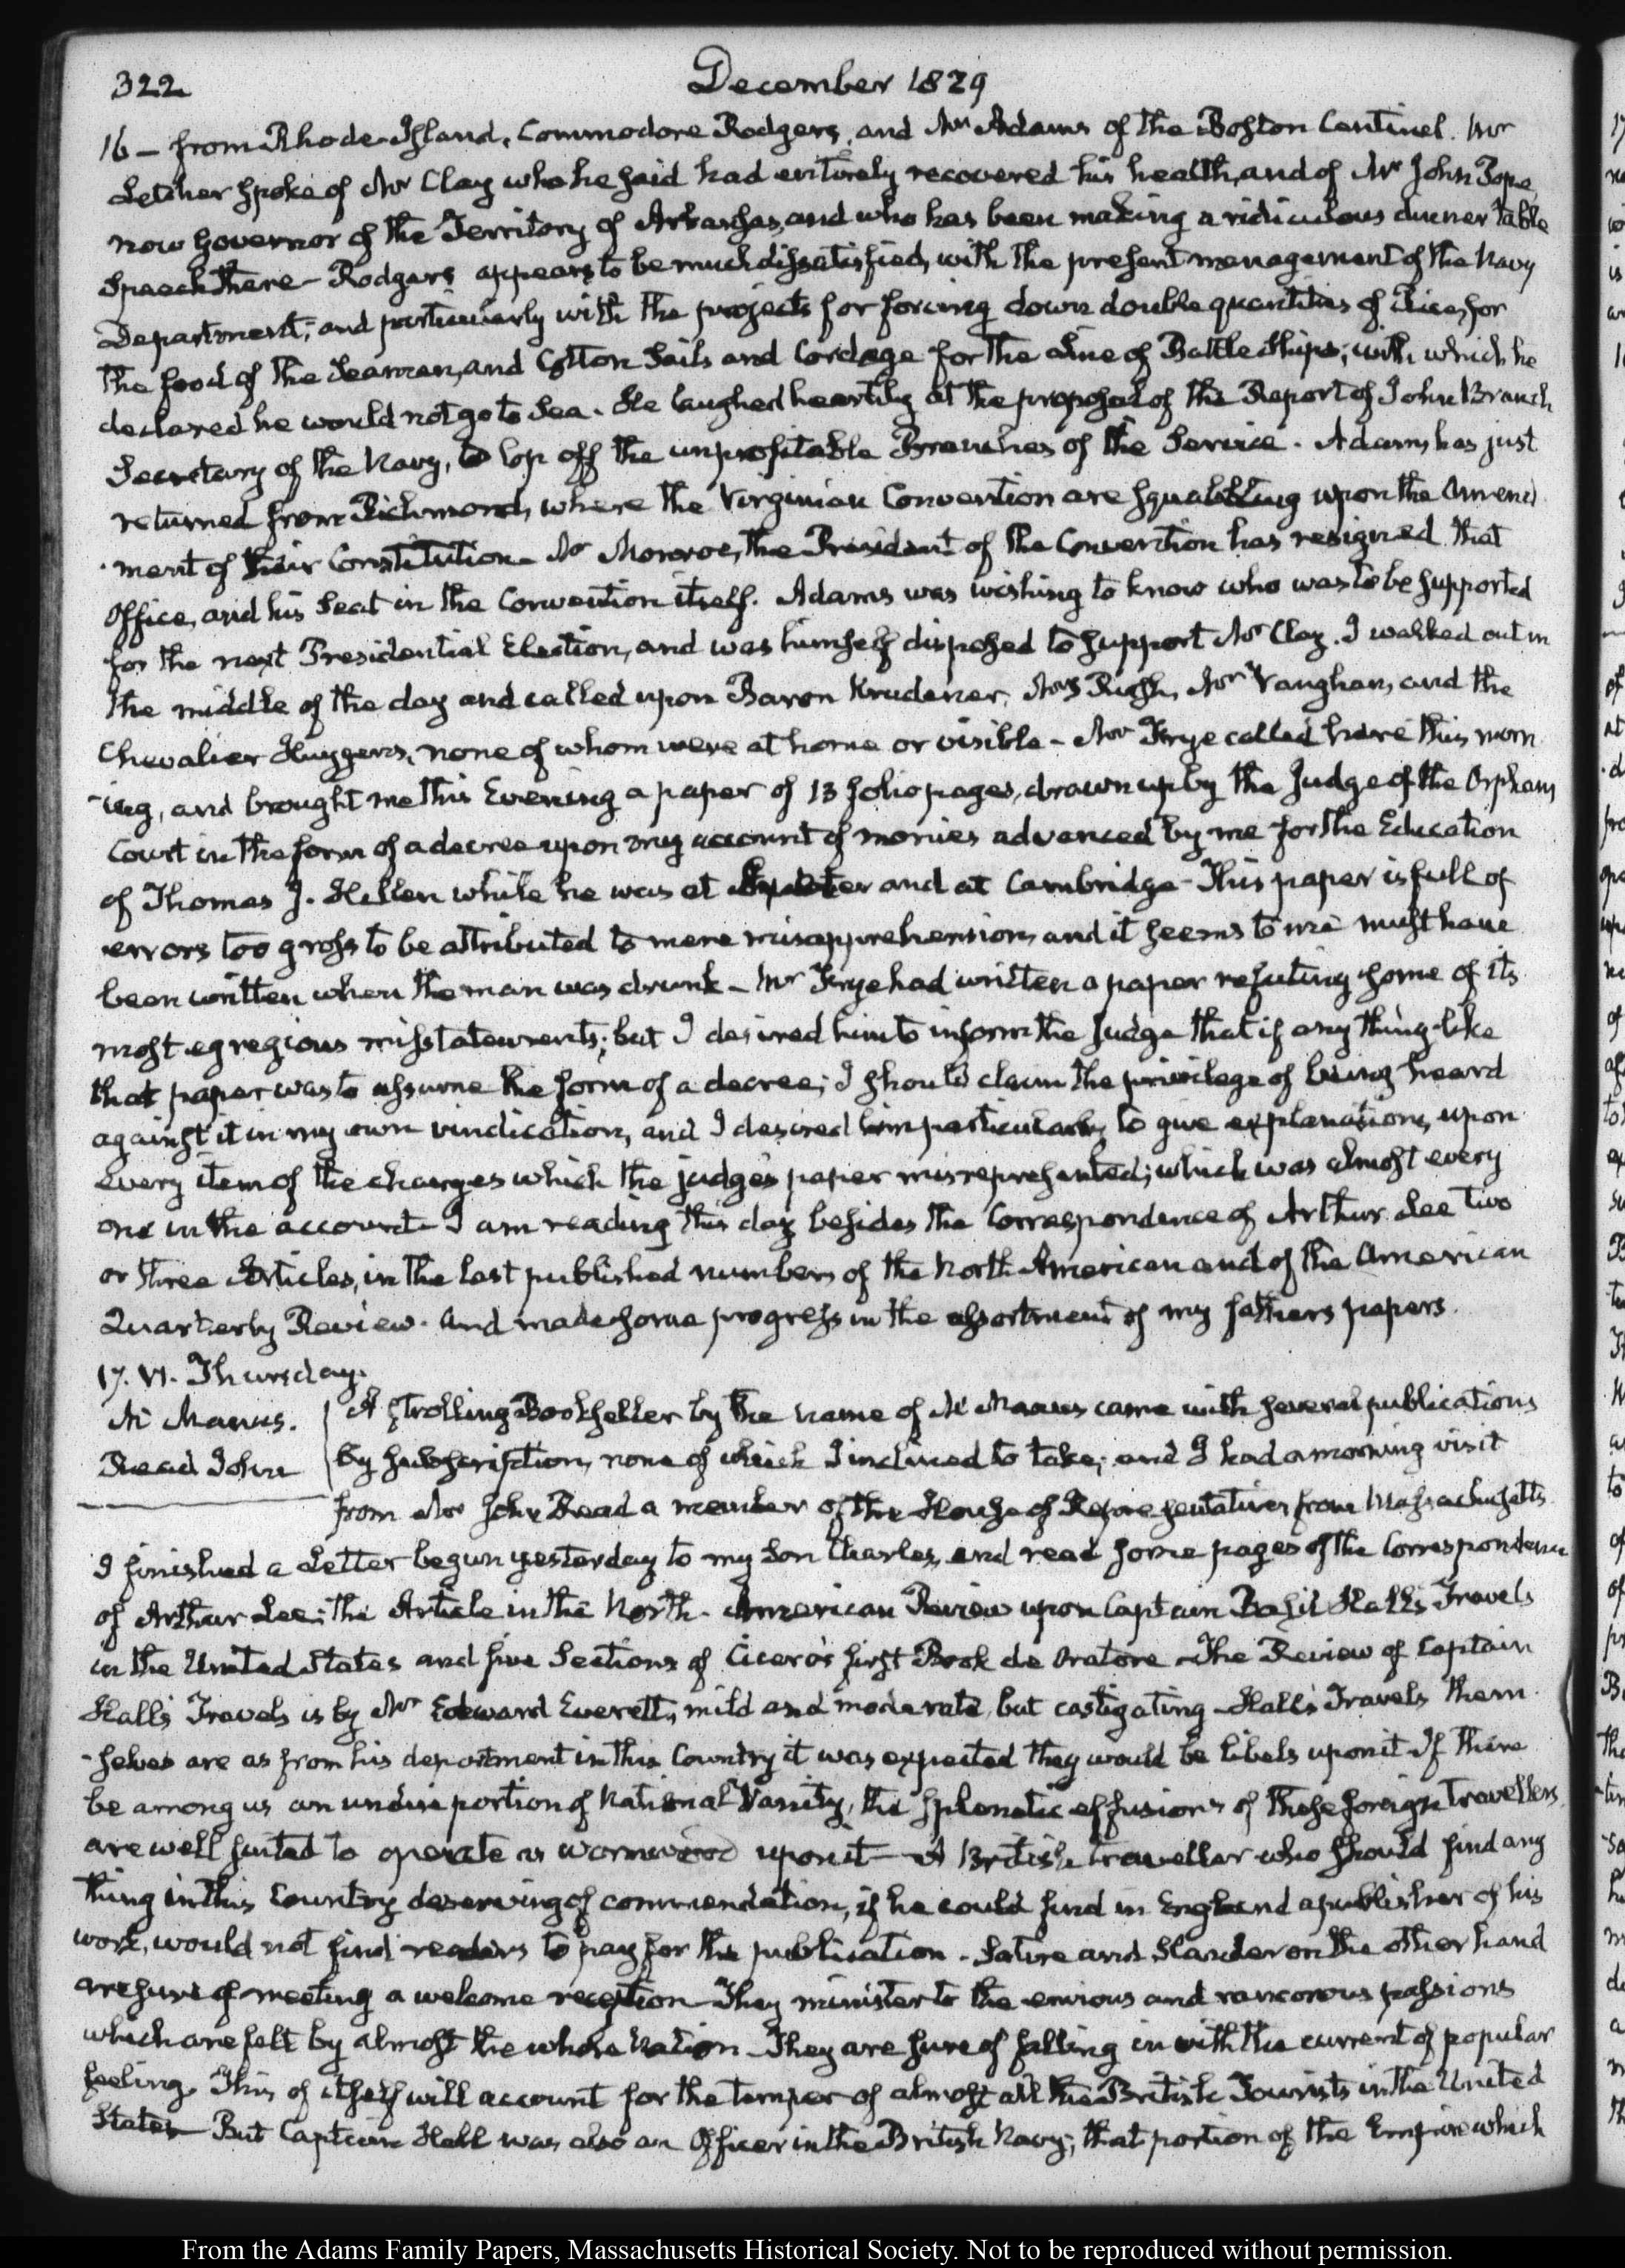 322
December 1829
16 — from Rhode-Island, Commodore Rodgers, and Mr Adams of the Boston Centinel. Mr
Letcher spoke of Mr Clay who he said had entirely recovered his health, and of Mr John Pope
now Governor of the Territory of Arkansas, and who has been making a ridiculous dinner table
Speech there — Rodgers appears to be much dissatisfied, with the present management of the Navy
Department; and particularly with the projects for forcing down double quantities of Rice, for
the food of the Seamen, and Cotton Sails and Cordage for the Line of Battle Ships; with which he
declared he would not go to Sea. He laughed heartily at the proposal of the Report of John Branch
Secretary of the Navy, to lop off the unprofitable Branches of the Service. Adams has just
returned from Richmond, where the Virginian Convention are squabbling upon the Amend
-ment of their Constitution — Mr Monroe, the President of the Convention has resigned that
Office, and his Seat in the Convention itself. Adams was wishing to know who was to be supported
for the next Presidential Election, and was himself disposed to support Mr Clay. I walked out in
the middle of the day and called upon Baron Krudener, Mrs Rush, Mr Vaughan, and the
Chevalier Huygens, none of whom were at home or visible — Mr Frye called here this morn
-ing, and brought me this Evening a paper of 13 folio pages, drawn up by the Judge of the Orphans
Court in the form of a decree upon my account of monies advanced by me for the Education
of Thomas J. Hellen while he was at Exeter and at Cambridge — This paper is full of
errors too gross to be attributed to mere misapprehension, and it seems to me must have
been written when the man was drunk — Mr Frye had written a paper refuting some of its
most egregious misstatements; but I desired him to inform the Judge that if any thing like
that paper was to assume the form of a decree; I should claim the privilege of being heard
against it in my own vindication, and I desired him particularly to give explanations, upon
every item of the charges which the judge's paper misrepresented; which was almost every
one in the account — I am reading this day besides the Correspondence of Arthur Lee two
or three Articles, in the last published numbers of the North American and of the American
Quarterly Review. And made some progress in the assortment of my fathers papers.
17. VI. Thursday.
Mc Manus.
Read John
A strolling Bookseller by the name of Mc Manus came with several publications
by subscription, none of which I inclined to take; and I had a morning visit
from Mr John Read a member of the House of Representatives from Massachusetts
I finished a Letter begun yesterday to my Son Charles, and read some pages of the Correspondence
of Arthur Lee; the Article in the North-American Review upon Captain Basil Hall's Travels
in the United States and five Sections of Cicero's first Book de Oratore — The Review of Captain
Hall's Travels is by Mr Edward Everett, mild and moderate, but castigating — Hall's Travels them
-selves are as from his deportment in this Country it was expected they would be libels upon it If there
be among us an undue portion of National Vanity, the splenetic effusions of these foreign Travellers
are well suited to operate as wormwood upon it — A British traveller who should find any
thing in this Country deserving of commendation, if he could find in England a publisher of his
work, would not find readers to pay for the publication — Satire and Slander on the other hand
are sure of meeting a welcome reception — They minister to the envious and rancorous passions
which are felt by almost the whole Nation — They are sure of falling in with the current of popular
feeling. This of itself will account for the temper of almost all the British Tourists in the United
States — But Captain Hall was also an Officer in the British Navy; that portion of the Empire which
From the Adams Family Papers, Massachusetts Historical Society. Not to be reproduced without permission.